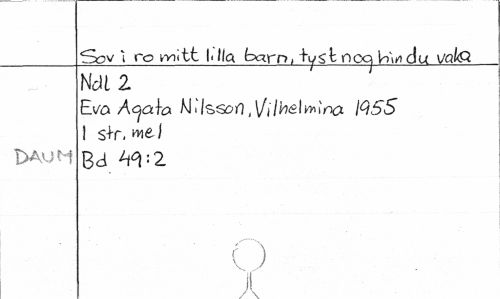 Sov i ro mitt lilla barn, tyst nog hin du vaka
Ndl 2
Eva Agata Nilsson, Vilhelmina 1955
1 str, mel
DAUM Bd 49:2